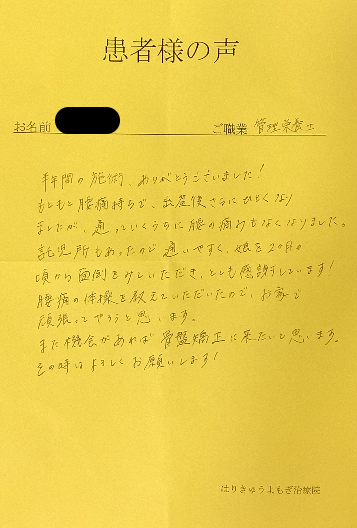 患者様の声
お名前
ご職業 管理栄養士
半年間の施術、ありがとうございました!
もともと腰痛持ちで、出産後さらにひどくなり
ましたが、通っていくうちに腰の痛みもなくなりました。
託児所もあったので通いやすく、娘を2ヶ月の
頃から面倒をみていただき、とても感謝しています!
腰痛の体操を教えていただいたので、お家で
頑張ってやろうと思います。
また機会があれば骨盤矯正に来たいと思います。
その時はよろしくお願いします!
はりきゅうよもぎ治療院